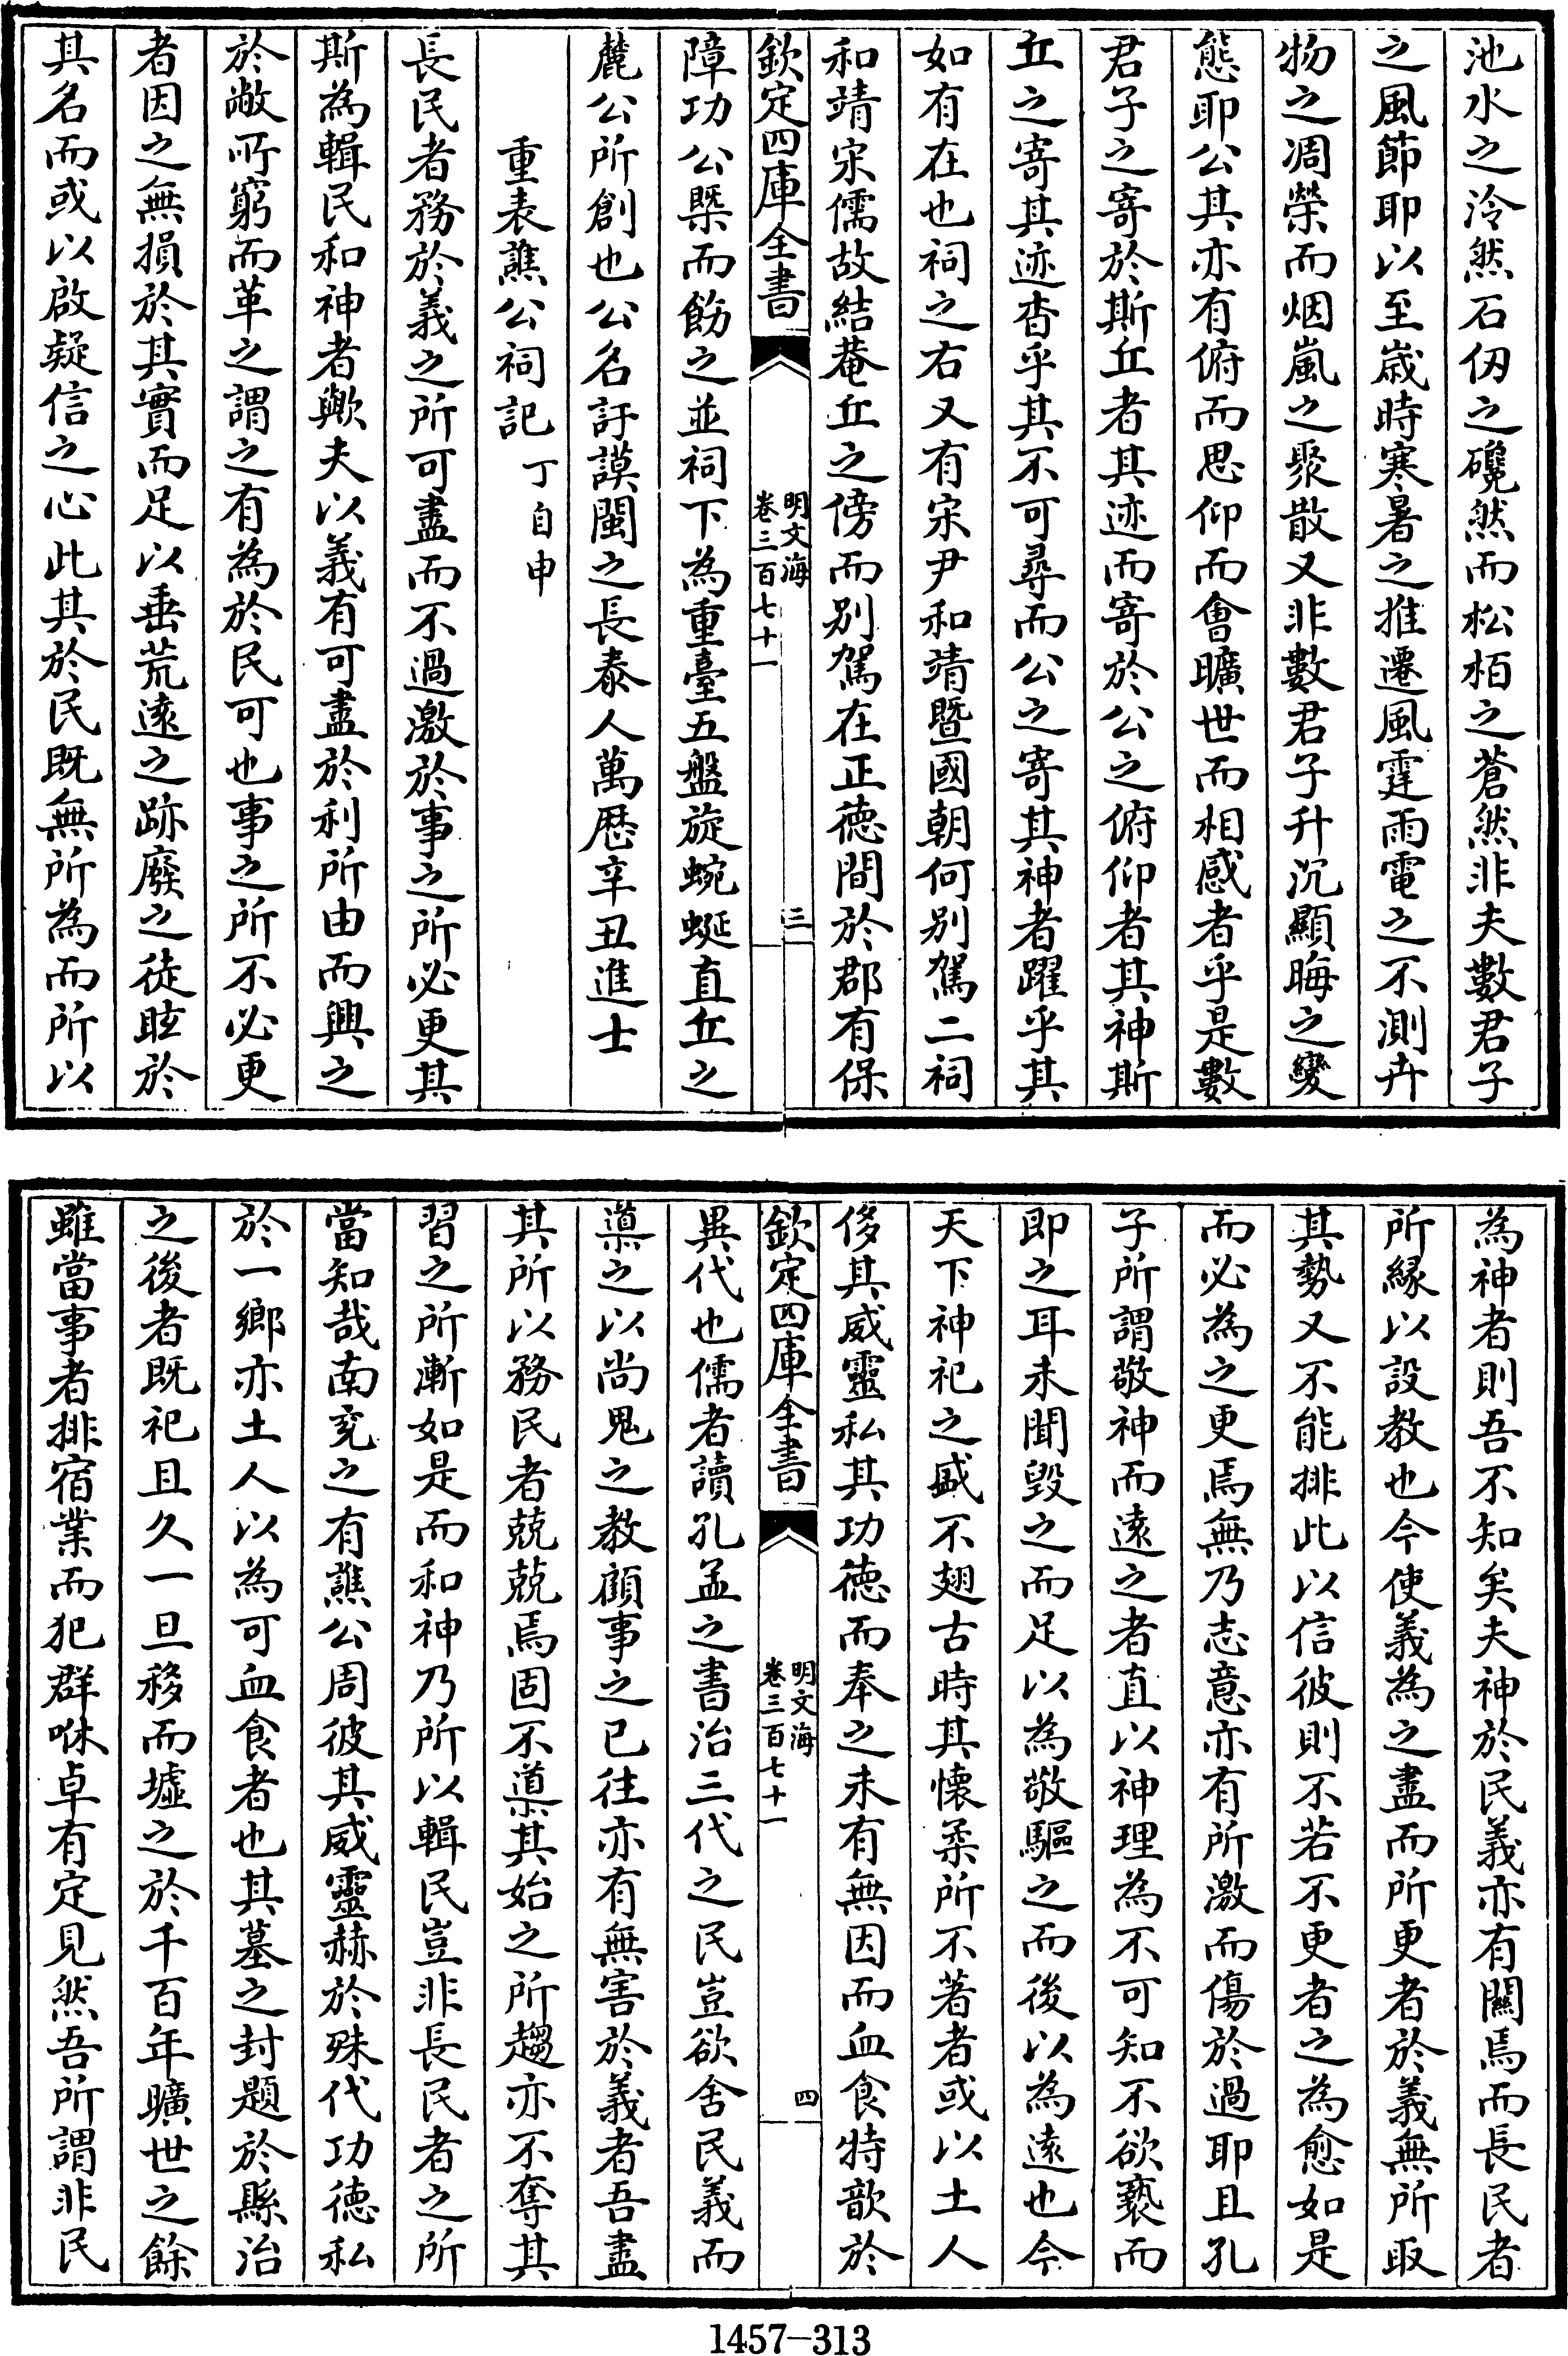 池水之泠然石仭之巉然而松栢之蒼然非夫數君子
之風節耶以至歲時寒暑之推遷風霆雨電之不測卉
物之凋榮而烟嵐之聚散又非數君子升沉顯晦之變
態耶公其亦有俯而思仰而會曠世而相感者乎是數
君子之寄於斯丘者其迹而寄於公之俯仰者其神斯
丘之寄其迹杳乎其不可尋而公之寄其神者躍乎其
如有在也祠之右又有宋尹和靖暨國朝何別駕二祠
和靖宋儒故結菴丘之傍而别駕在正徳間於郡有保
欽定四庫全書
明文海
卷三百七十一
三
障功公槩而飭之並祠下為重臺五盤旋蜿蜒直丘之
麓公所創也公名訏謨閩之長泰人萬厯辛丑進士
重表譙公祠記 丁自申
長民者務於義之所可盡而不過激於事之所必更其
斯為輯民和神者歟夫以義有可盡於利所由而興之
於敝所窮而革之謂之有為於民可也事之所不必更
者因之無損於其實而足以垂荒遠之跡廢之徒眩於
其名而或以啟疑信之心此其於民既無所為而所以
為神者則吾不知矣夫神於民義亦有關焉而長民者
所縁以設教也今使義為之盡而所更者於義無所取
其勢又不能排此以信彼則不若不更者之為愈如是
而必為之更焉無乃志意亦有所激而傷於過耶且孔
子所謂敬神而遠之者直以神理為不可知不欲褻而
即之耳未聞毀之而足以為敬驅之而後以為遠也今
天下神祀之盛不翅古時其懷柔所不著者或以土人
侈其威靈私其功徳而奉之未有無因而血食特歆於
欽定四庫全書
明文海
卷三百七十一
四
異代也儒者讀孔孟之書治三代之民豈欲舍民義而
導之以尚鬼之教顧事之已往亦有無害於義者吾盡
其所以務民者兢兢焉固不導其始之所趨亦不奪其
習之所漸如是而和神乃所以輯民豈非長民者之所
當知哉南充之有譙公周彼其威靈赫於殊代功徳私
於一鄉亦土人以為可血食者也其墓之封題於縣治
之後者既祀且久一旦移而墟之於千百年曠世之餘
雖當事者排宿業而犯群咻卓有定見然吾所謂非民
1457-313